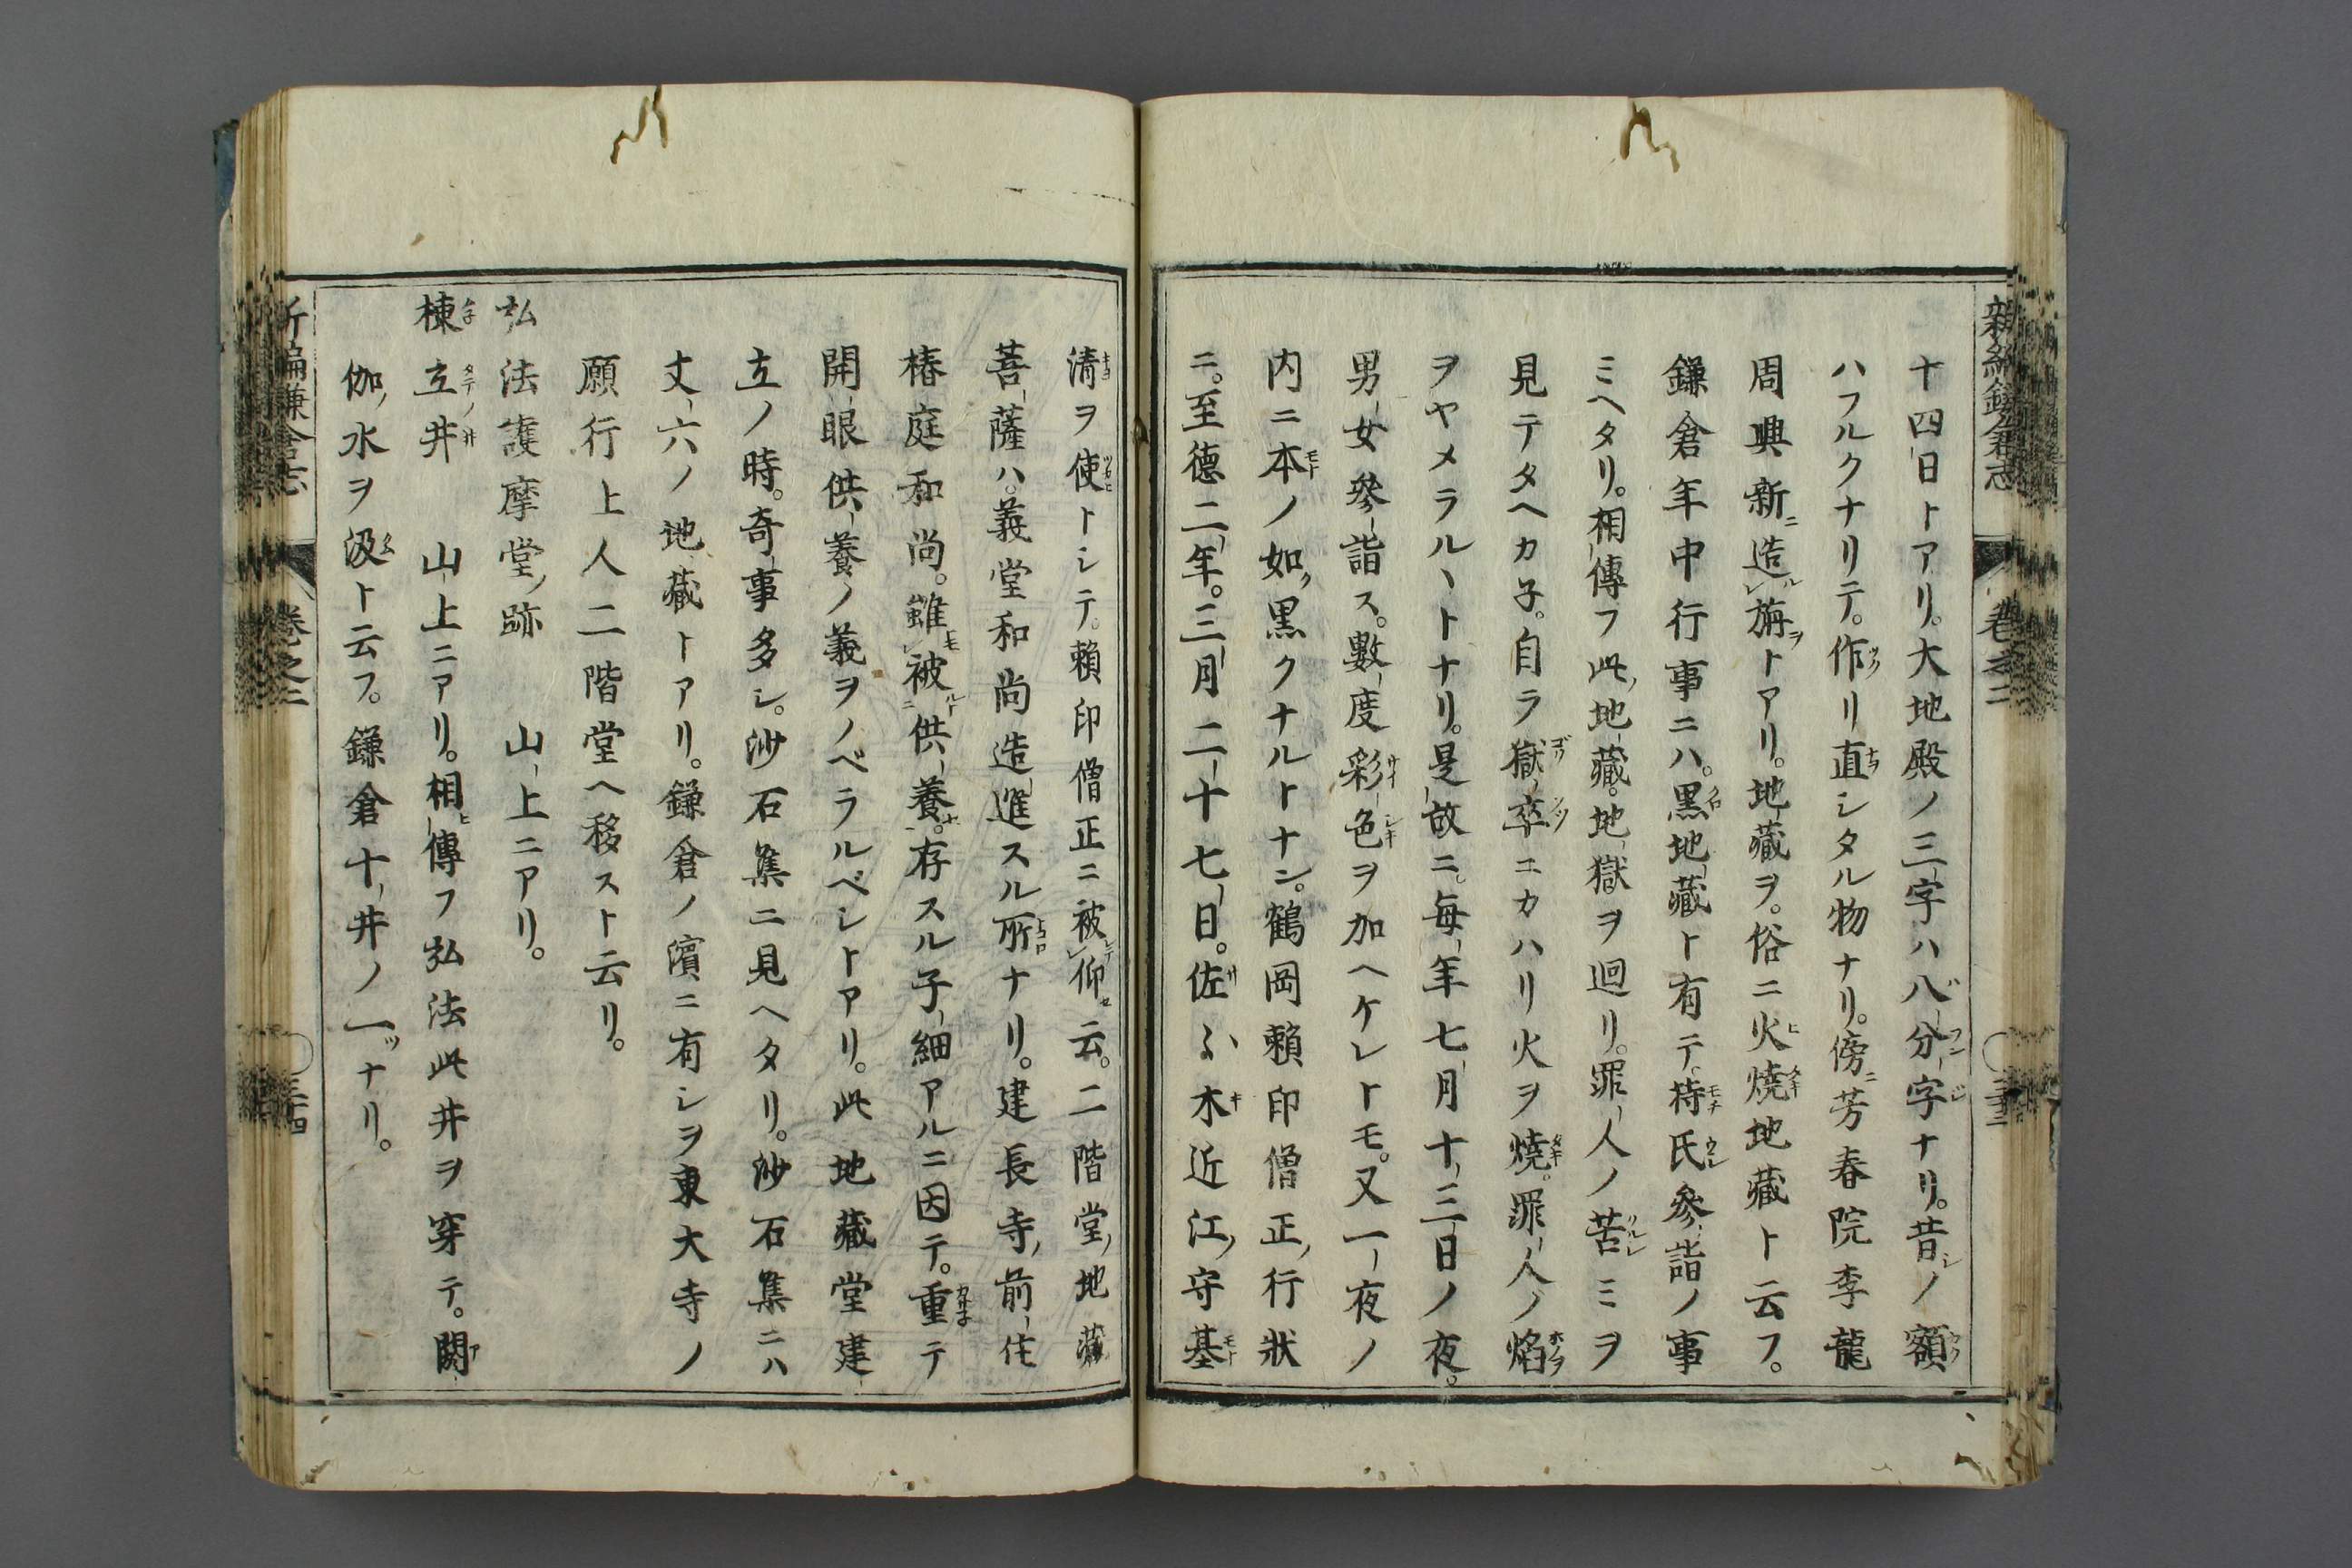 新編鎌倉志 卷之二 三十三
十四日トアリ。大地殿ノ三字ハ八分字ナリ。昔ノ額
ハフルクナリテ。作リ直シタル物ナリ。傍芳春院李龍
周興新造旃トアリ。地藏ヲ。俗ニ火燒地藏ト云フ。
鎌倉年中行事ニハ。黒地藏ト有テ。持氏參詣ノ事
ミヘタリ。相傳フ此地藏。地獄ヲ迴リ。罪人ノ苦ミヲ
見テタヘカ子。自ラ獄卒ニカハリ火ヲ燒。罪人ノ焰
ヲヤメラルヽトナリ。是故ニ。毎年七月十三日ノ夜。
男女參詣ス。數度彩色ヲ加ヘケレトモ。又一夜ノ
内ニ本ノ如黒クナルトナン。鶴岡頼印僧正行狀
ニ。至德二年。三月二十七日。佐々木近江守基
清ヲ使トシテ。頼印僧正ニ被仰。云。二階堂地藏
菩薩ハ。義堂和尚造進スル所ナリ。建長寺前住
椿庭和尚。雖被供養。存スル子細アルニ因テ。重テ
開眼供養ノ義ヲノベラルベシトアリ。此地藏堂建
立ノ時。奇事多シ。沙石集ニ見ヘタリ。沙石集ニハ
丈六ノ地藏トアリ。鎌倉ノ濱ニ有シヲ東大寺ノ
願行上人二階堂ヘ移スト云リ。
弘法護摩堂跡 山上ニアリ。
棟立井 山上ニアリ。相傳フ弘法此井ヲ穿テ。閼
伽水ヲ汲ト云フ。鎌倉十井ノ一ナリ。
新編鎌倉志 卷之二 三十四